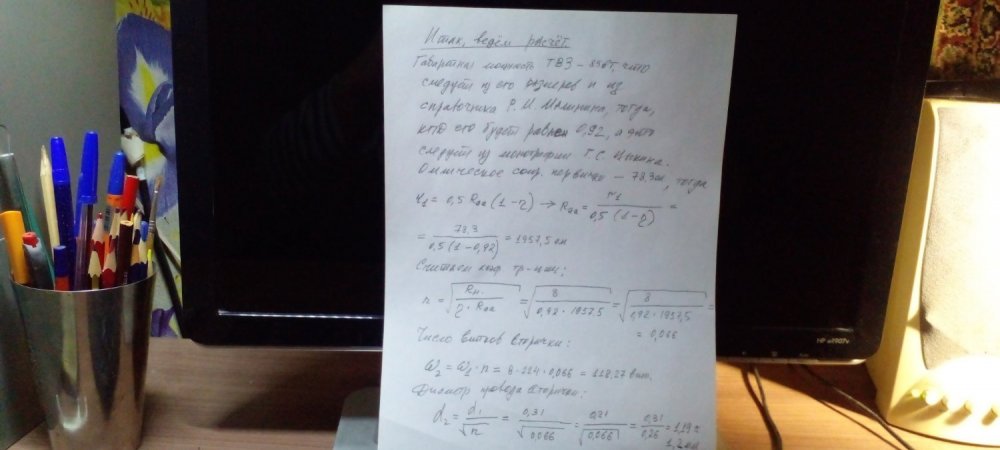 Итак, ведём расчёт.
Габаритная мощность ТВЗ – что
следует из его размеров и из
справочника Р. М. Малинина, тогда,
кпд его будет равен 0,92, а это
следует из монографии Г. С. Цыкина.
Омическое сопр. первички – 78,3 ом, тогда
r1 = 0,5 Raa (1-η) → Raa = r1 / 0,5 (1-η) =
= 78,3 / 0,5 (1-0,92) = 1957,5 ом
Считаем коэф. тр-ции:
n = √ Rн. / η · Raa = √ 8 / 0,92 · 1957,5 = √ 8 / 0,92 · 1957,5 =
= 0,066
Число витков вторички:
ω2 = ω1 · n = 8·224·0,066 = 118,27 вит.
Диаметр провода вторички:
d2 = d1 / √n = 0,31 / √0,066 = 0,31 / √0,066 = 0,31 / 0,26 = 1,19 ≈
1,2 мм
HP